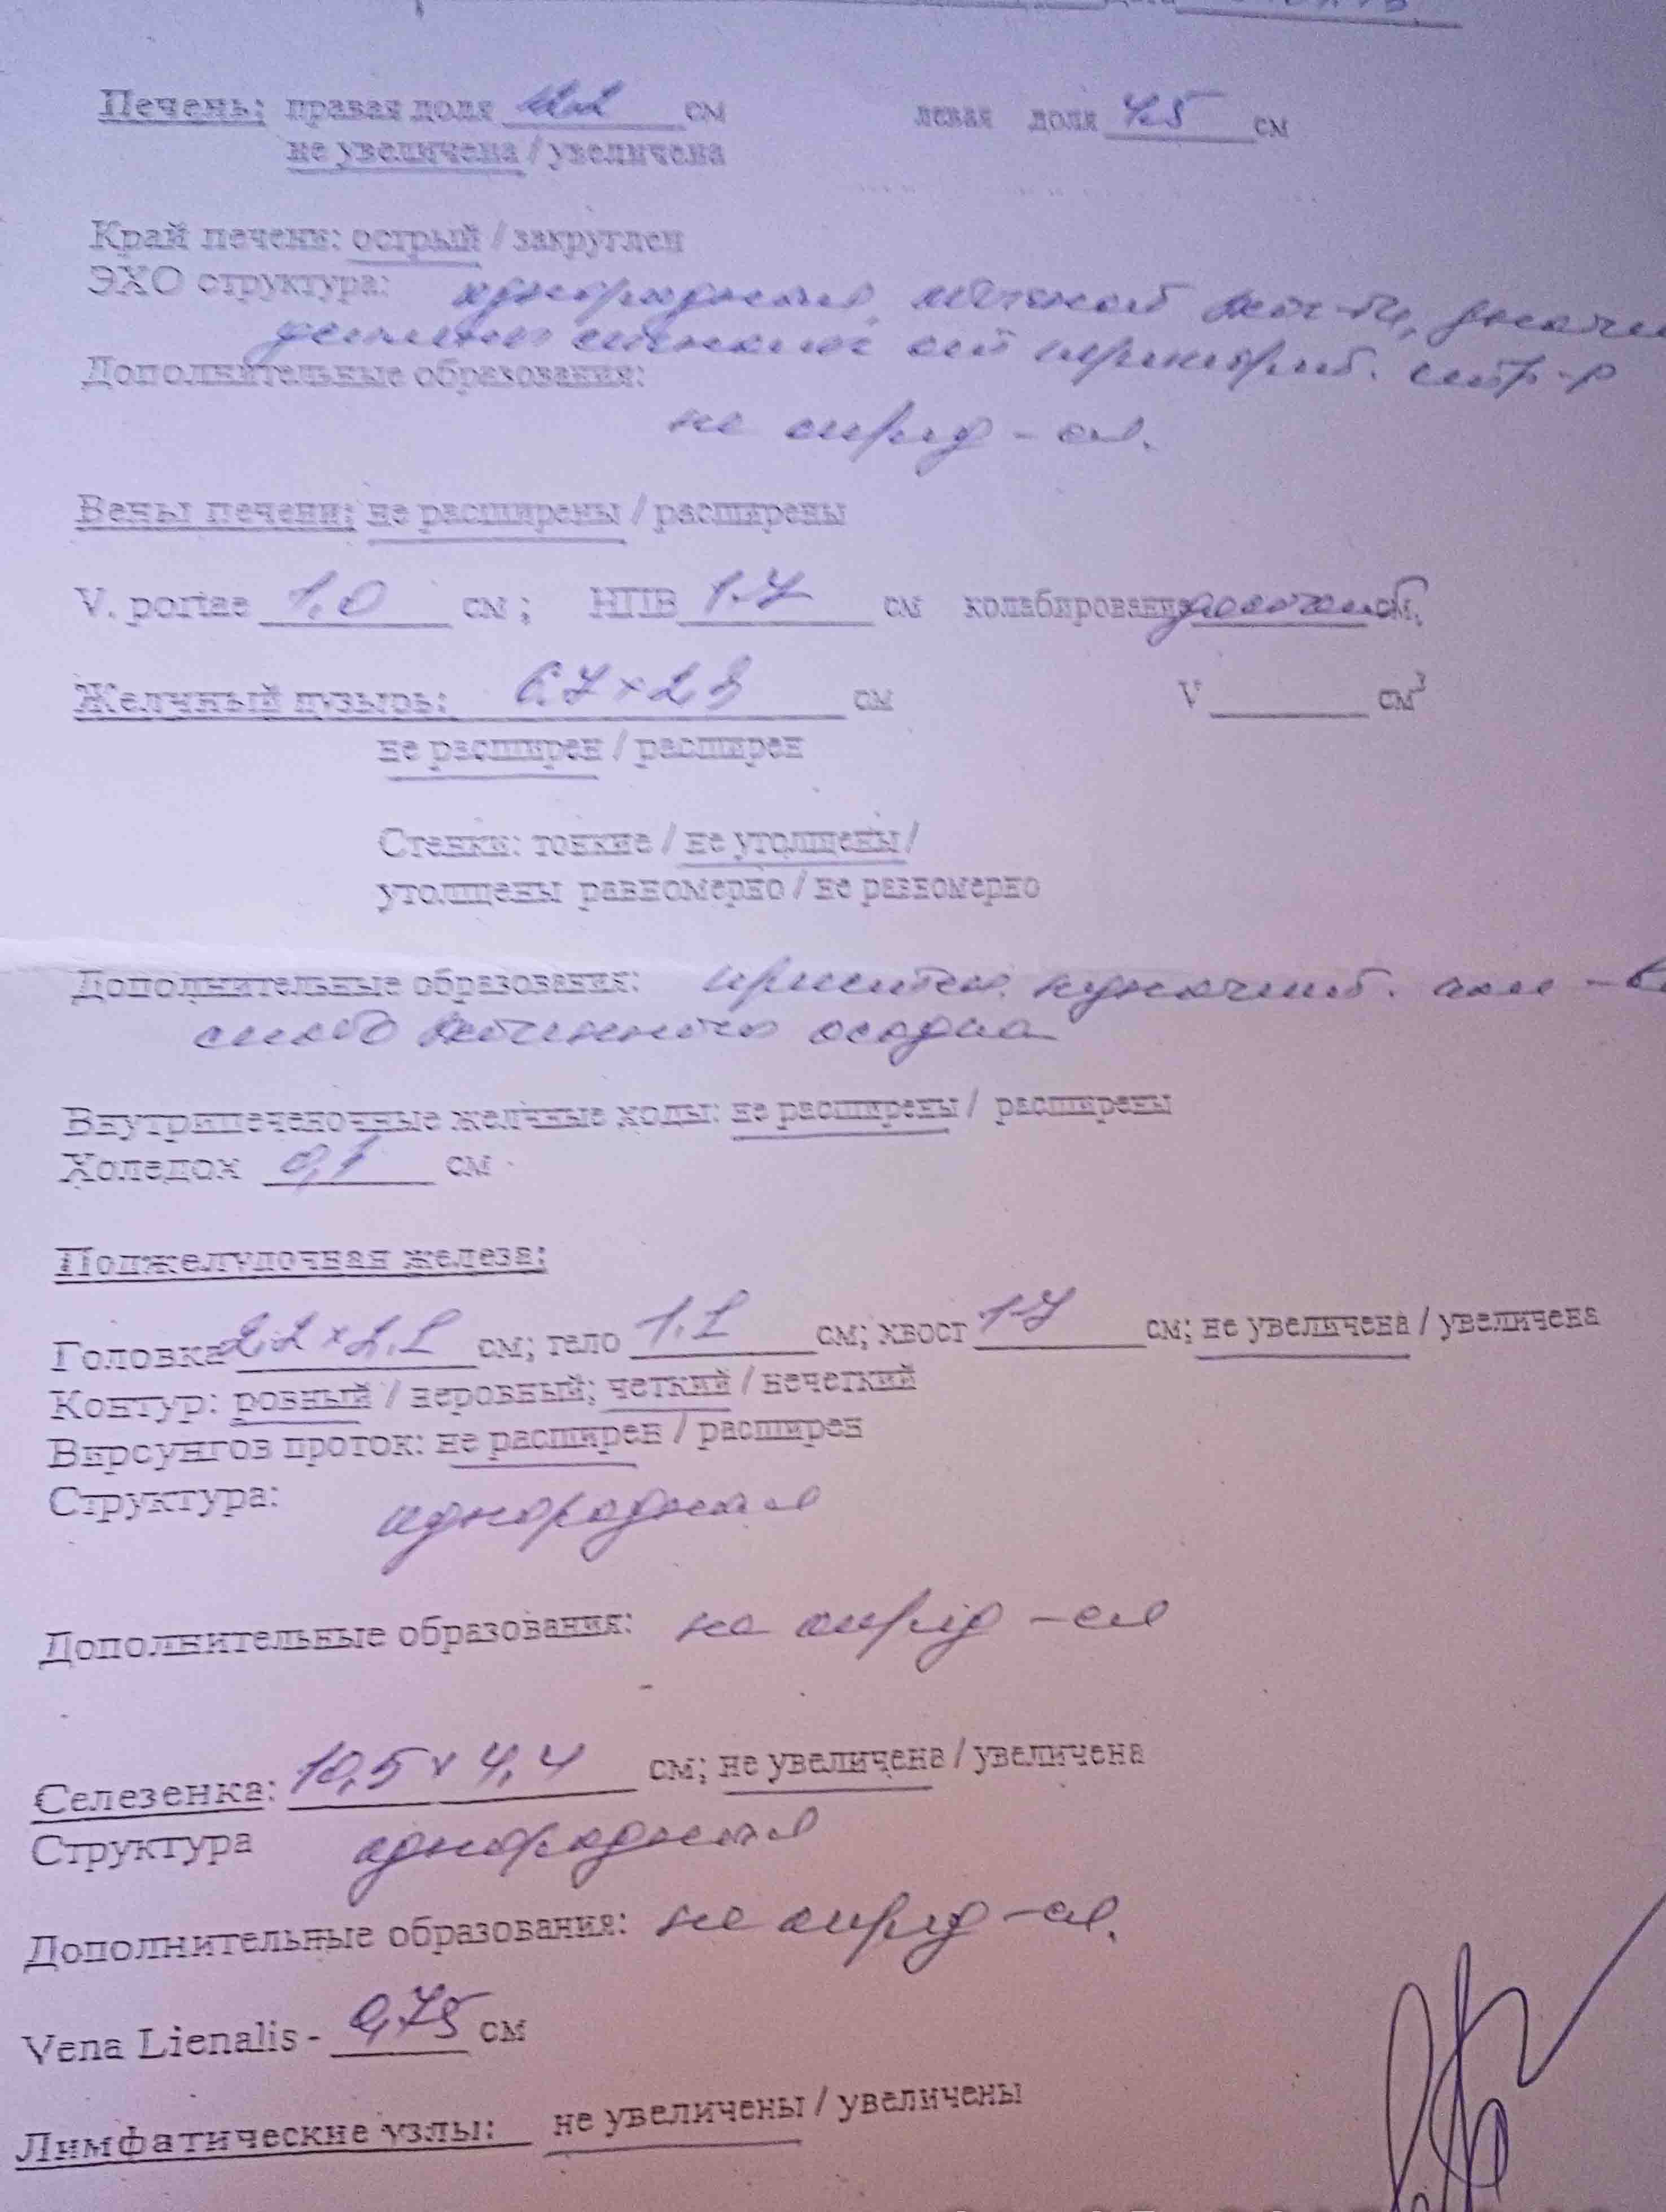 Печень: правая доля 12.2 см левая доля 7.5 см
не увеличена / увеличена
Край печени: острый / закруглен
ЭХО структура: однородная,
сигналов от перипорт. стр-р
Дополнительные образования:
не опред-ся.
Вены печени: не расширены / расширены
V. portae 1,0 см ; НПВ 1.7 см колабирование см.
Желчный пузырь: 6.7 × 2.3 см V см³
не расширен / расширен
Стенки: тонкие / не утолщены /
утолщены равномерно / не равномерно
Дополнительные образования: пристен. кол-во
осадка
Внутрипеченочные желчные ходы: не расширены / расширены
Холедох см
Поджелудочная железа:
Головка 2.2 × см; тело см; хвост 1.7 см; не увеличена / увеличена
Контур: ровный / неровный; четкий / нечеткий
Вирсунгов проток: не расширен / расширен
Структура: однородная
Дополнительные образования: не опред-ся
Селезенка: 10,5 × 4,4 см; не увеличена / увеличена
Структура однородная
Дополнительные образования: не опред-ся.
Vena Lienalis - 0,75 см
Лимфатические узлы: не увеличены / увеличены